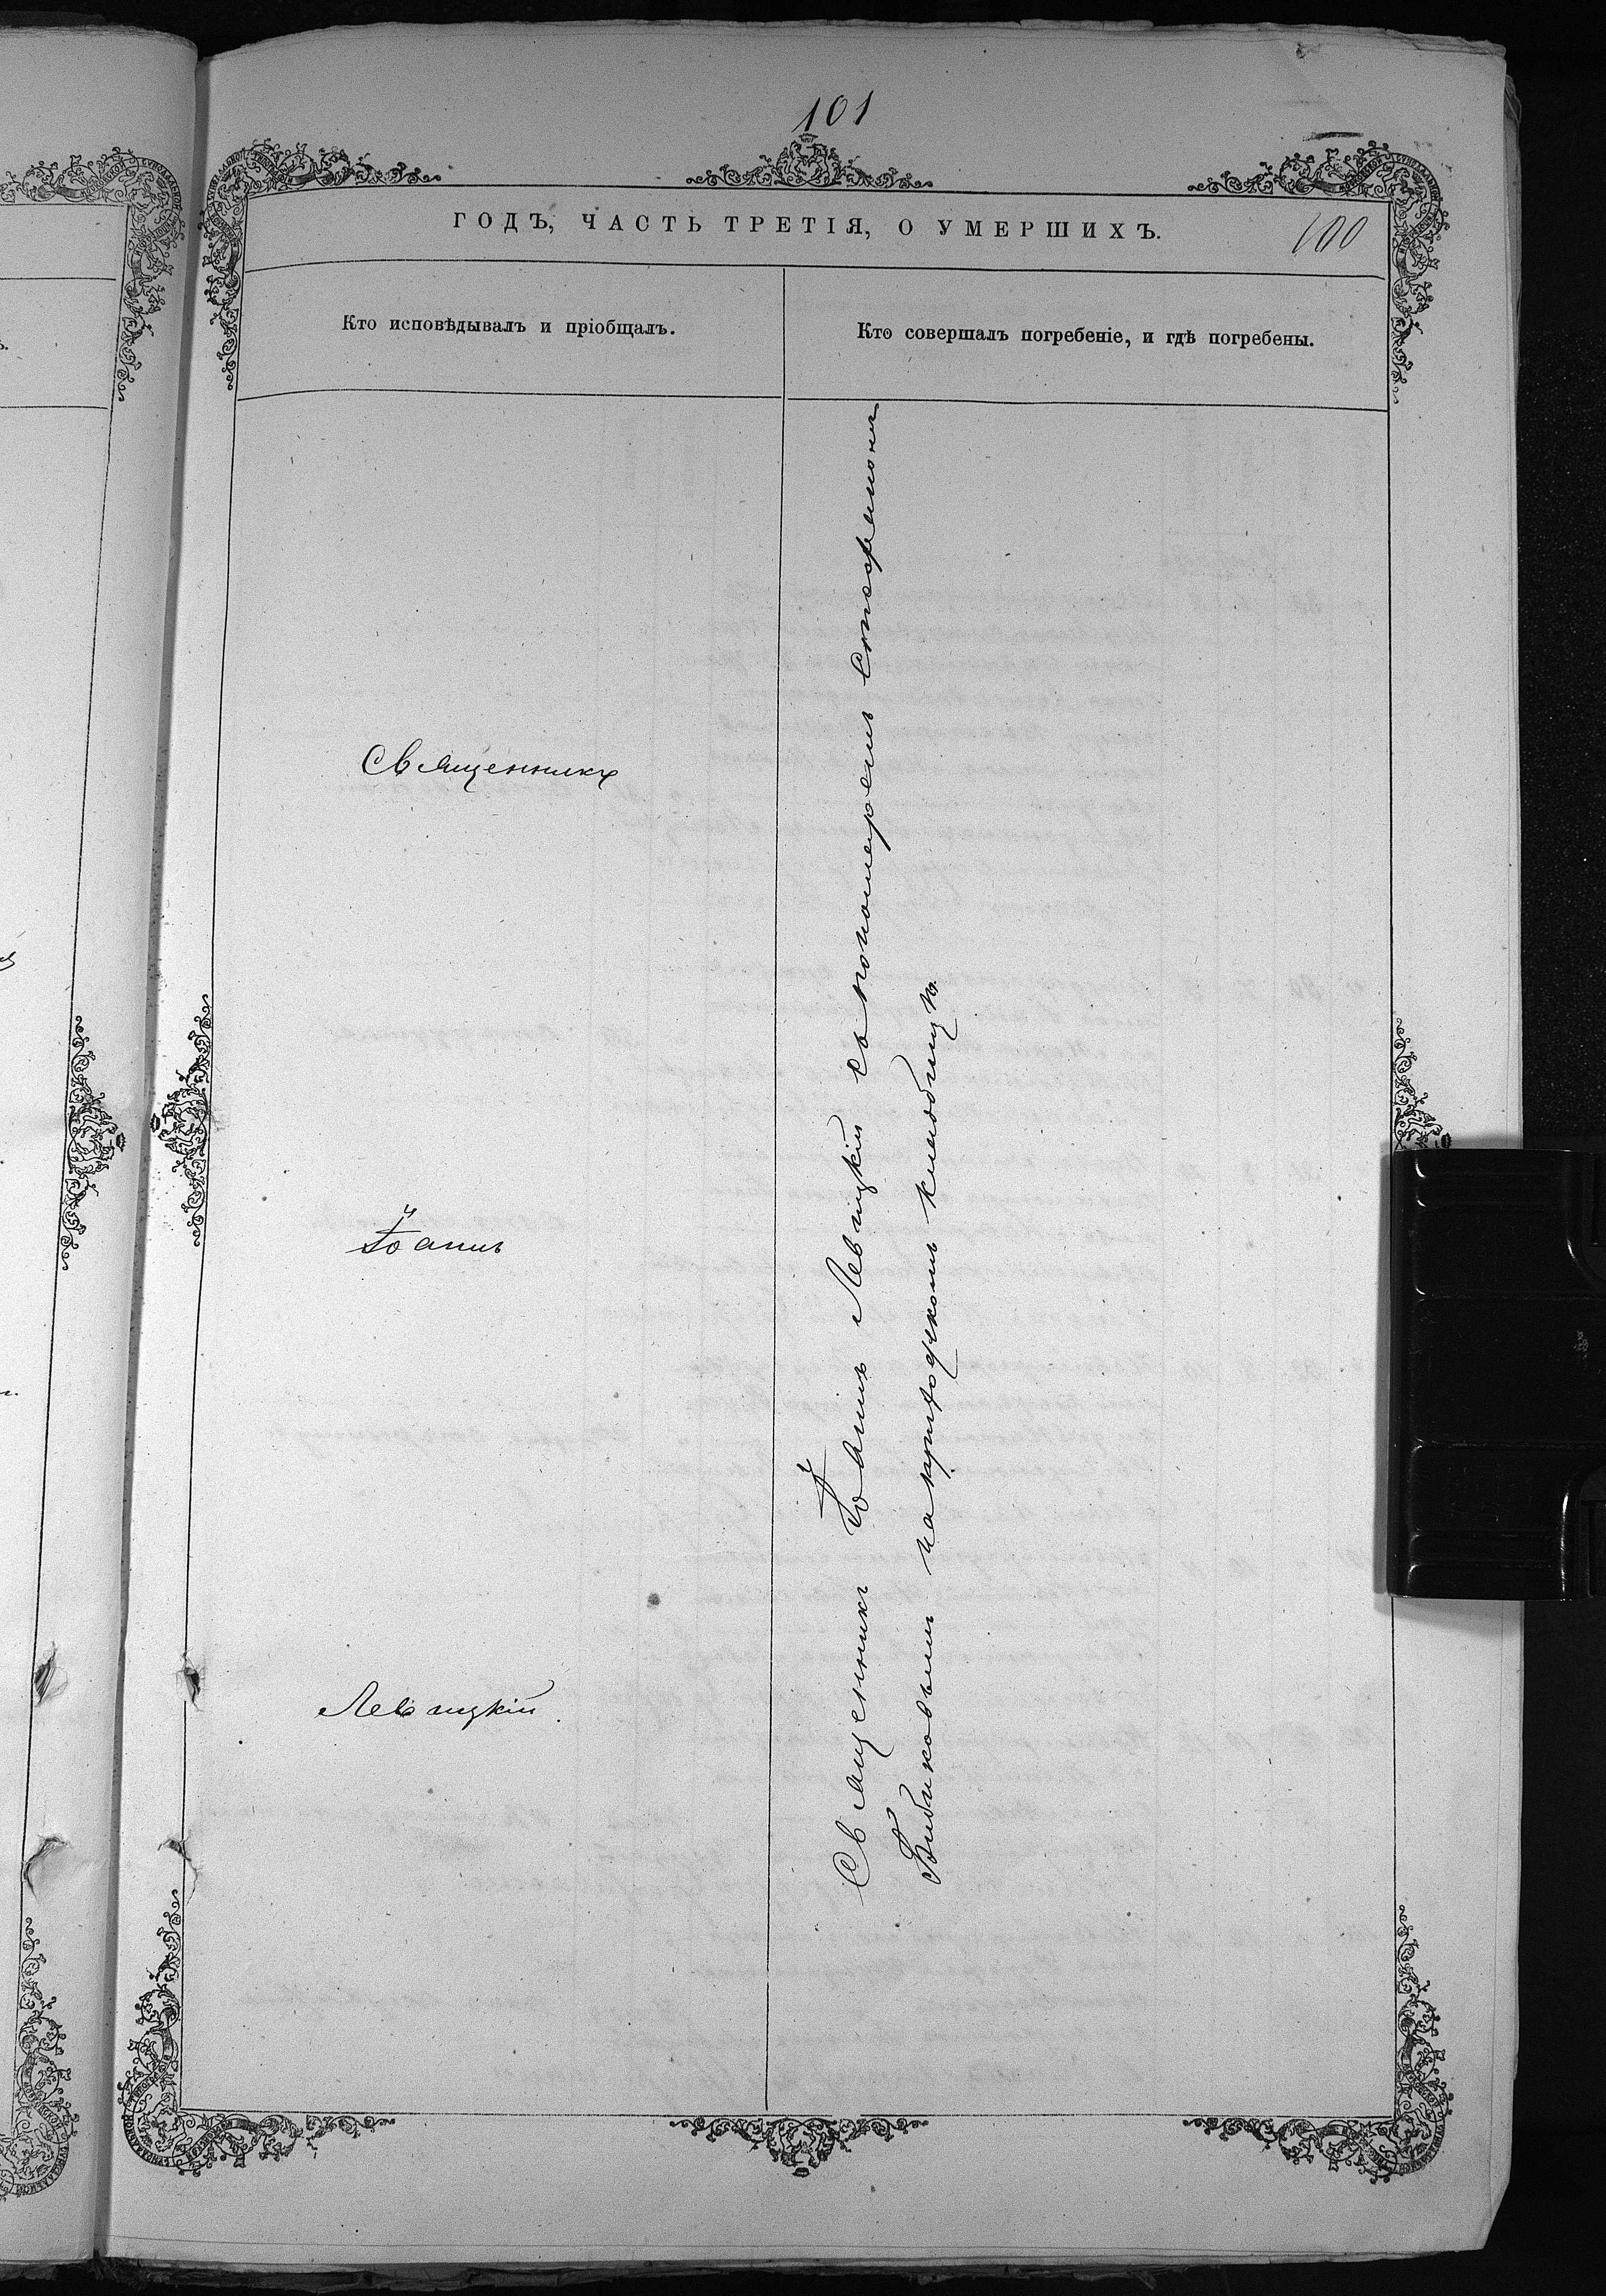 101
ГОДЪ, ЧАСТЬ ТРЕТІЯ, О УМЕРШИХЪ.
100
Кто исповѣдывалъ и пріобщалъ.
Кто совершалъ погребеніе, и гдѣ погребены.
Священникъ
Іоаннъ
Левицкій.
Священникъ Іоаннъ Левицкій съ пономаремъ Стефаномъ
Бибиковымъ на приходскомъ кладбищѣ.